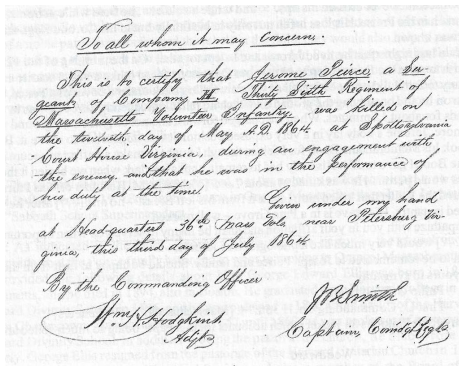 To all whom it may concern.
This is to certify that Jerome Peirce a Ser-
geant of Company "H" Thirty Sixth Regiment of
Massachusetts Volunteer Infantry was killed on
the twelfth day of May A.D. 1864 at Spottsylvania
Court House Virginia, during an engagement with
the enemy and that he was in the performance of
his duty at the time.
Given under my hand
at Head-quarters 36th Mass Vols, near Petersburg Vir-
ginia, this third day of July 1864
By the Commanding Officer
Wm. H. Hodgkins
Adjt
Smith
Captain, Comdg